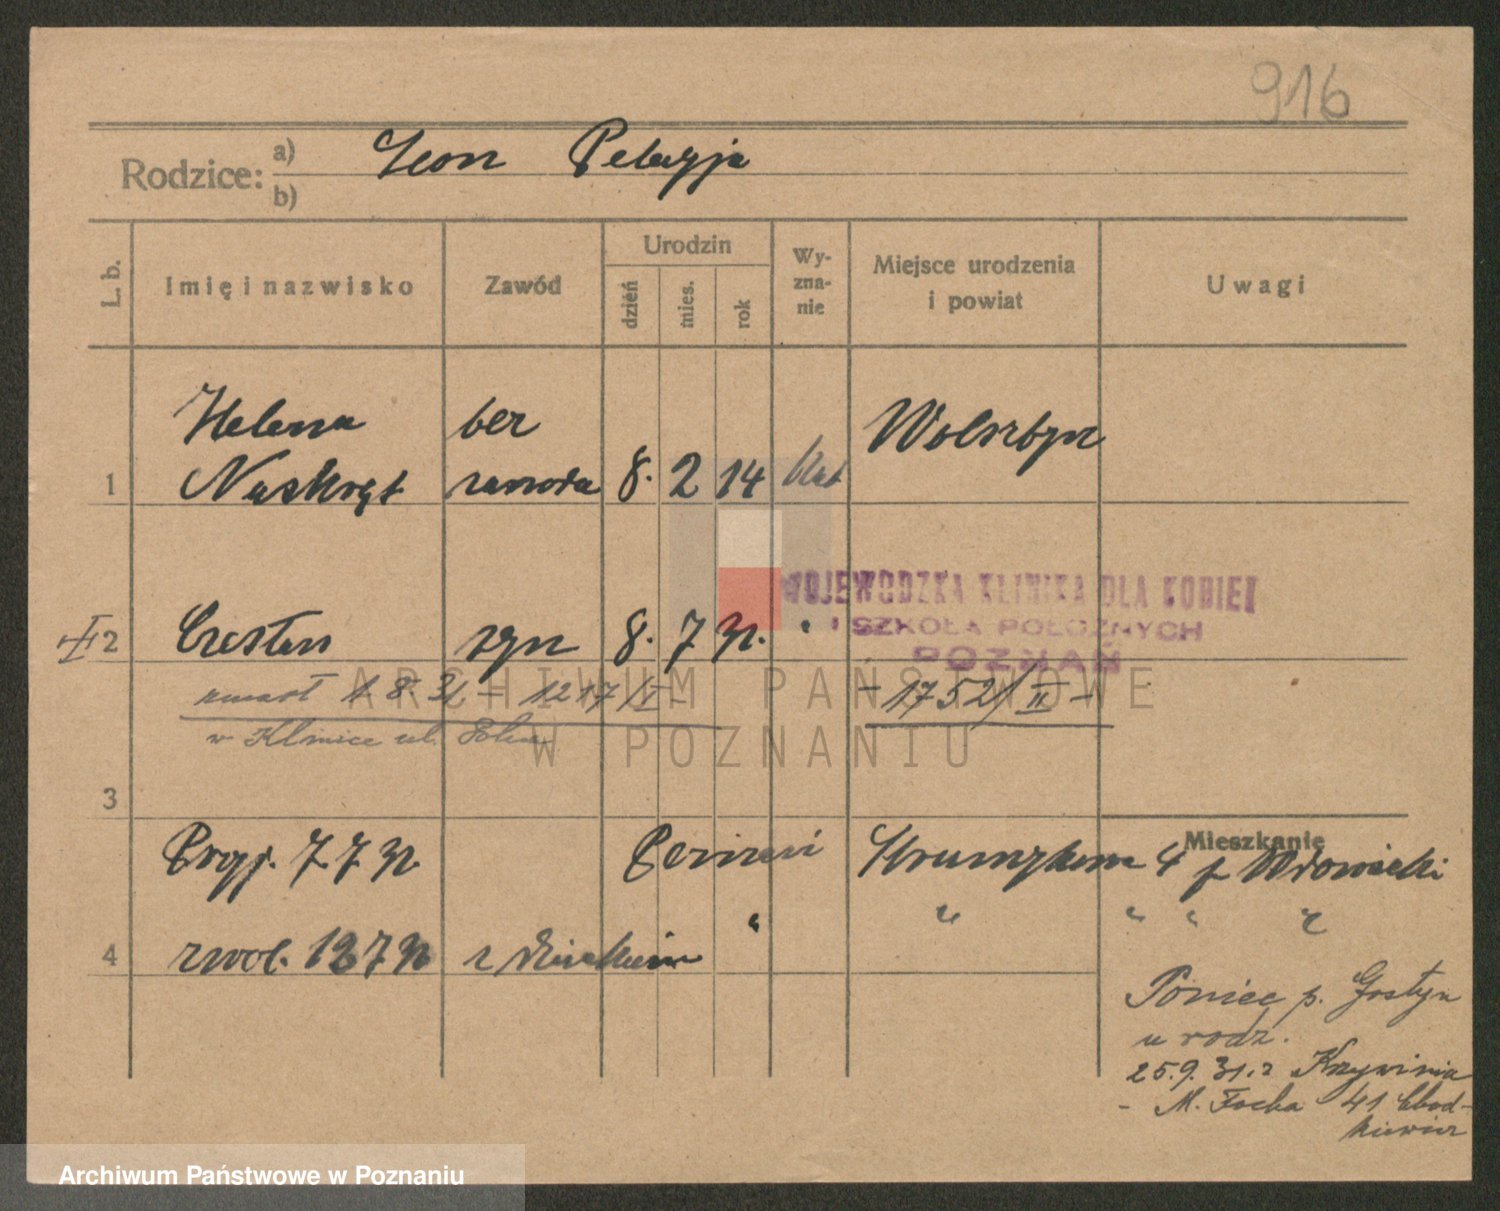 916
Rodzice: a) Leon Pelagja
b)
L. b. Imię i nazwisko Zawód Urodzin dzień mies. rok Wyznanie Miejsce urodzenia i powiat Uwagi
Helena bez Wolsztyn
1 Naskręt zawodu 8. 2 14 kat
WOJEWÓDZKA KLINIKA DLA KOBIET
I SZKOŁA POŁOŻNYCH
POZNAŃ
2 Czesław syn 8. 7 31.
zmarł 1 8. 31 - 1217/I - - 1752/II -
w Klinice ul. Polna
3
Mieszkanie
Przyj. 7 7 31 4 p
4 zwol. 7 31 z dzieckiem
Poniec p. Gostyn
u rodz.
25.9.31.z Krzywinia
- M. Focha 41 Chod-
kiewicz
ARCHIWUM PAŃSTWOWE
W POZNANIU
Archiwum Państwowe w Poznaniu